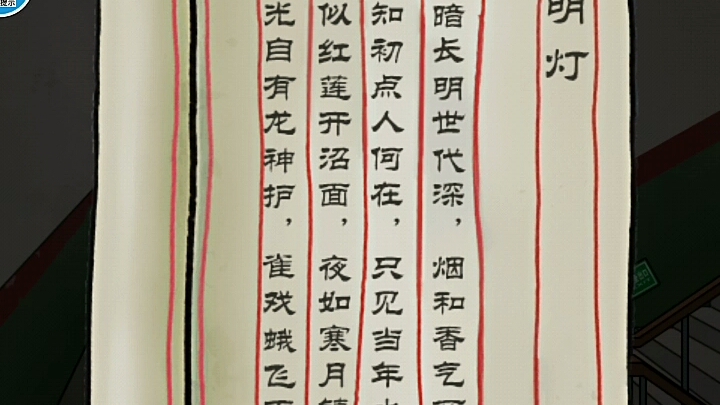 明灯
暗长明世代深，烟和香气
知初点人何在，只见当年
似红莲开沼面，夜如寒月
光自有龙神护，雀戏蛾飞
提示